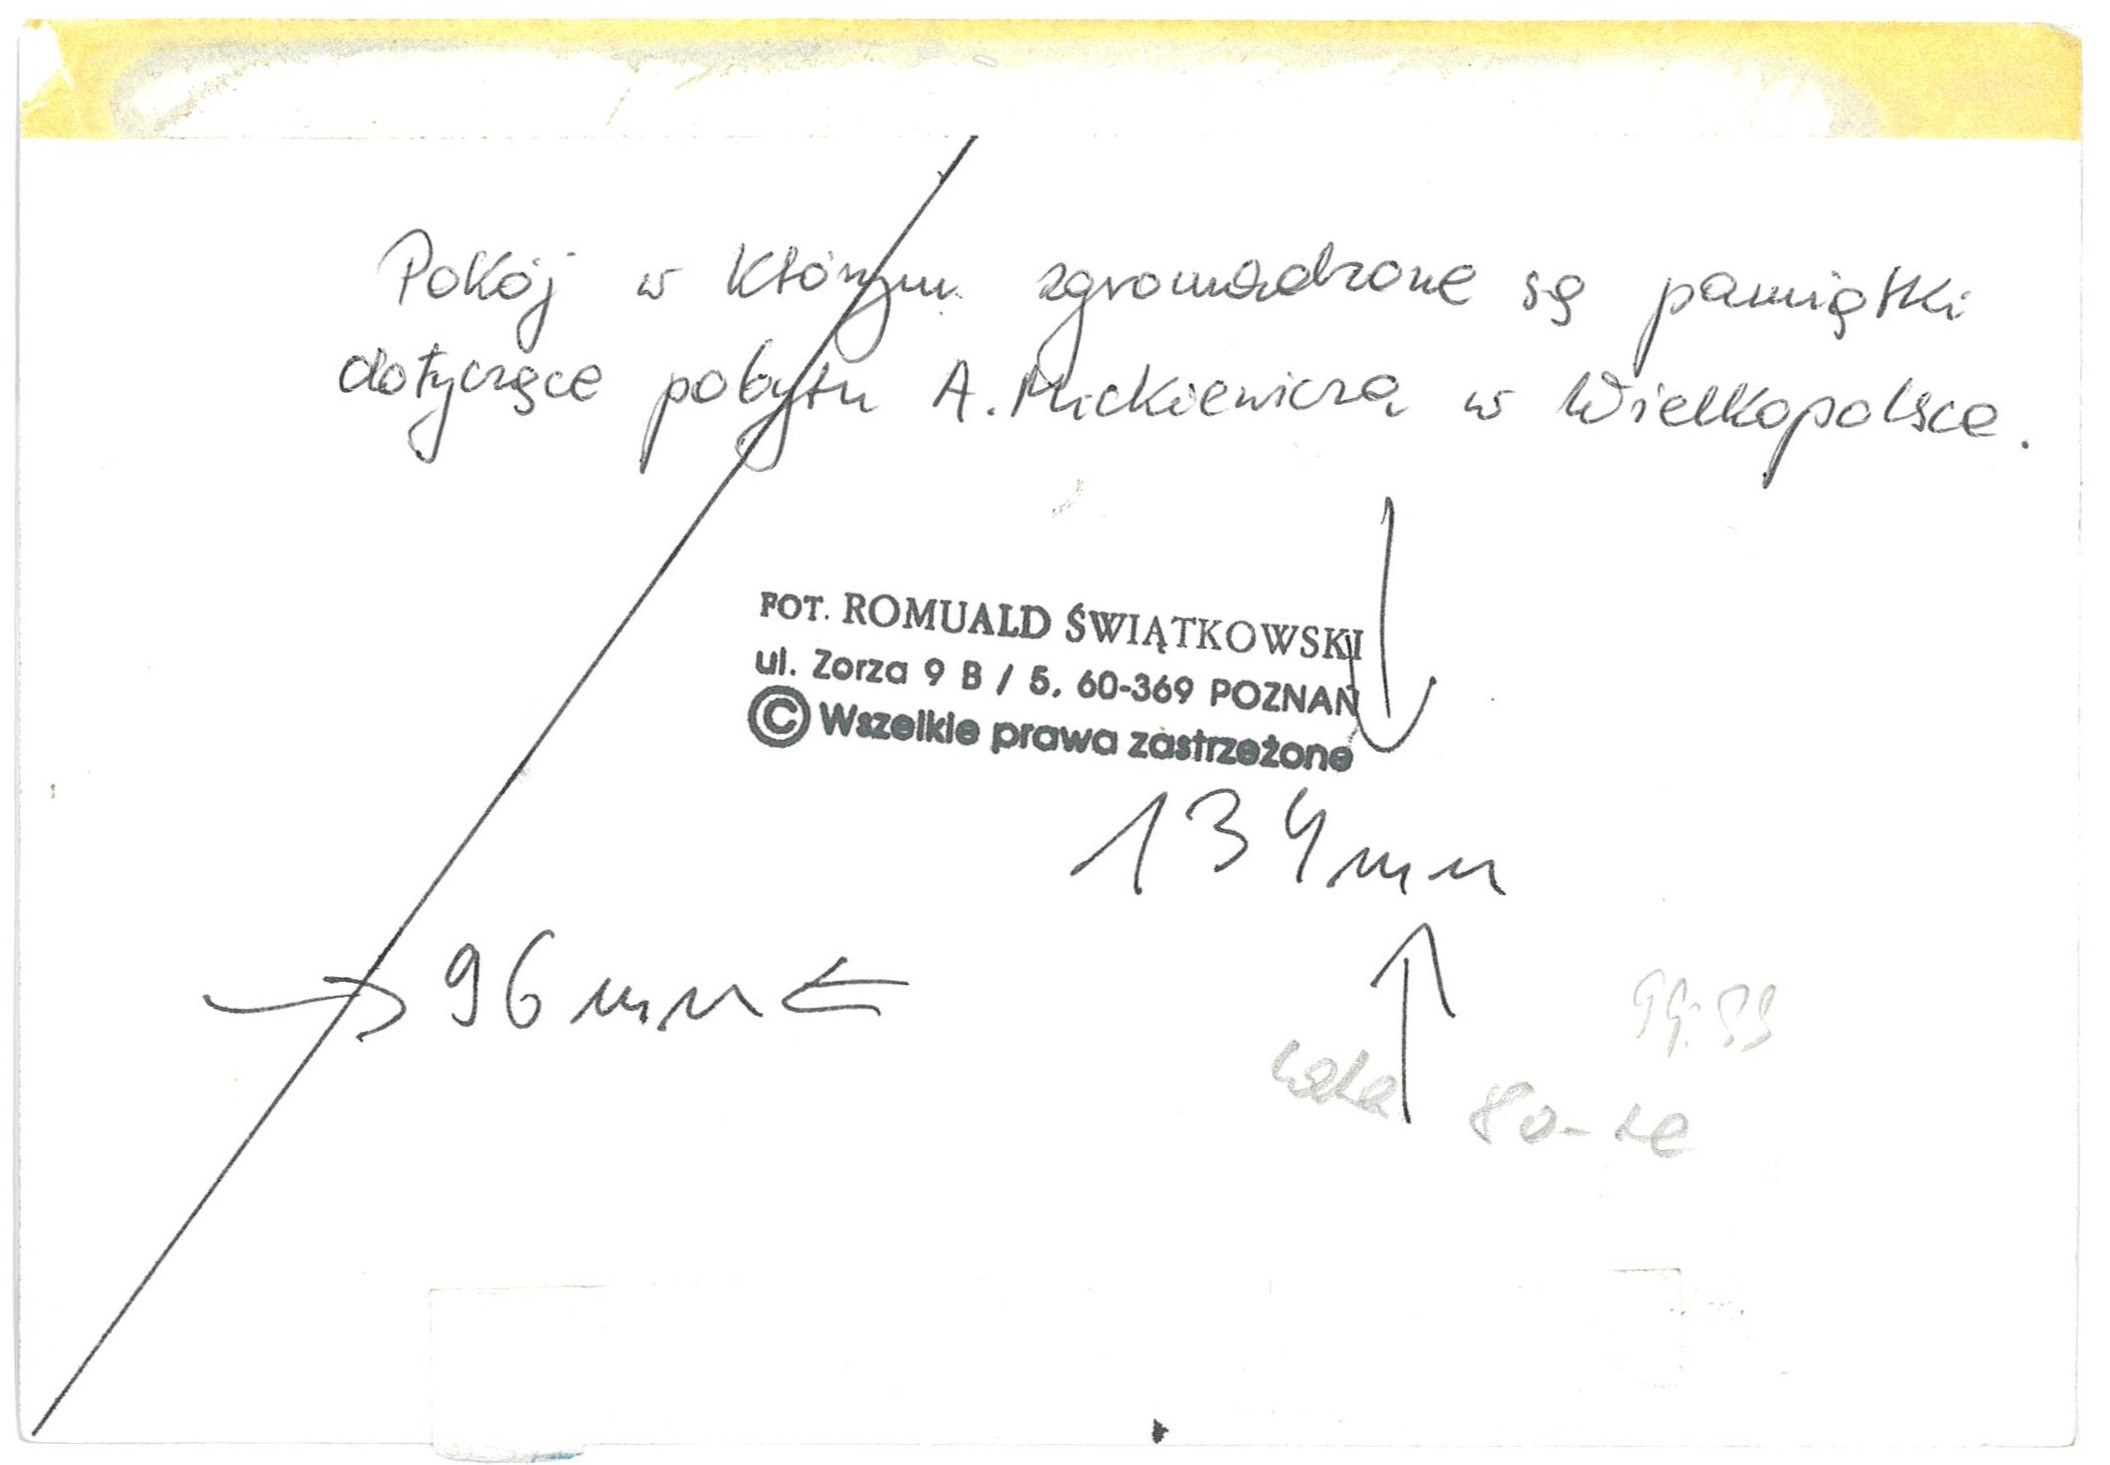 Pokój w którym zgromadzone są pamiątki
dotyczące pobytu A. Mickiewicza w Wielkopolsce.
FOT. ROMUALD ŚWIĄTKOWSKI
ul. Zorza 9 B / 5, 60-369 POZNAŃ
© Wszelkie prawa zastrzeżone
134 mm
96 mm
lata 80-te